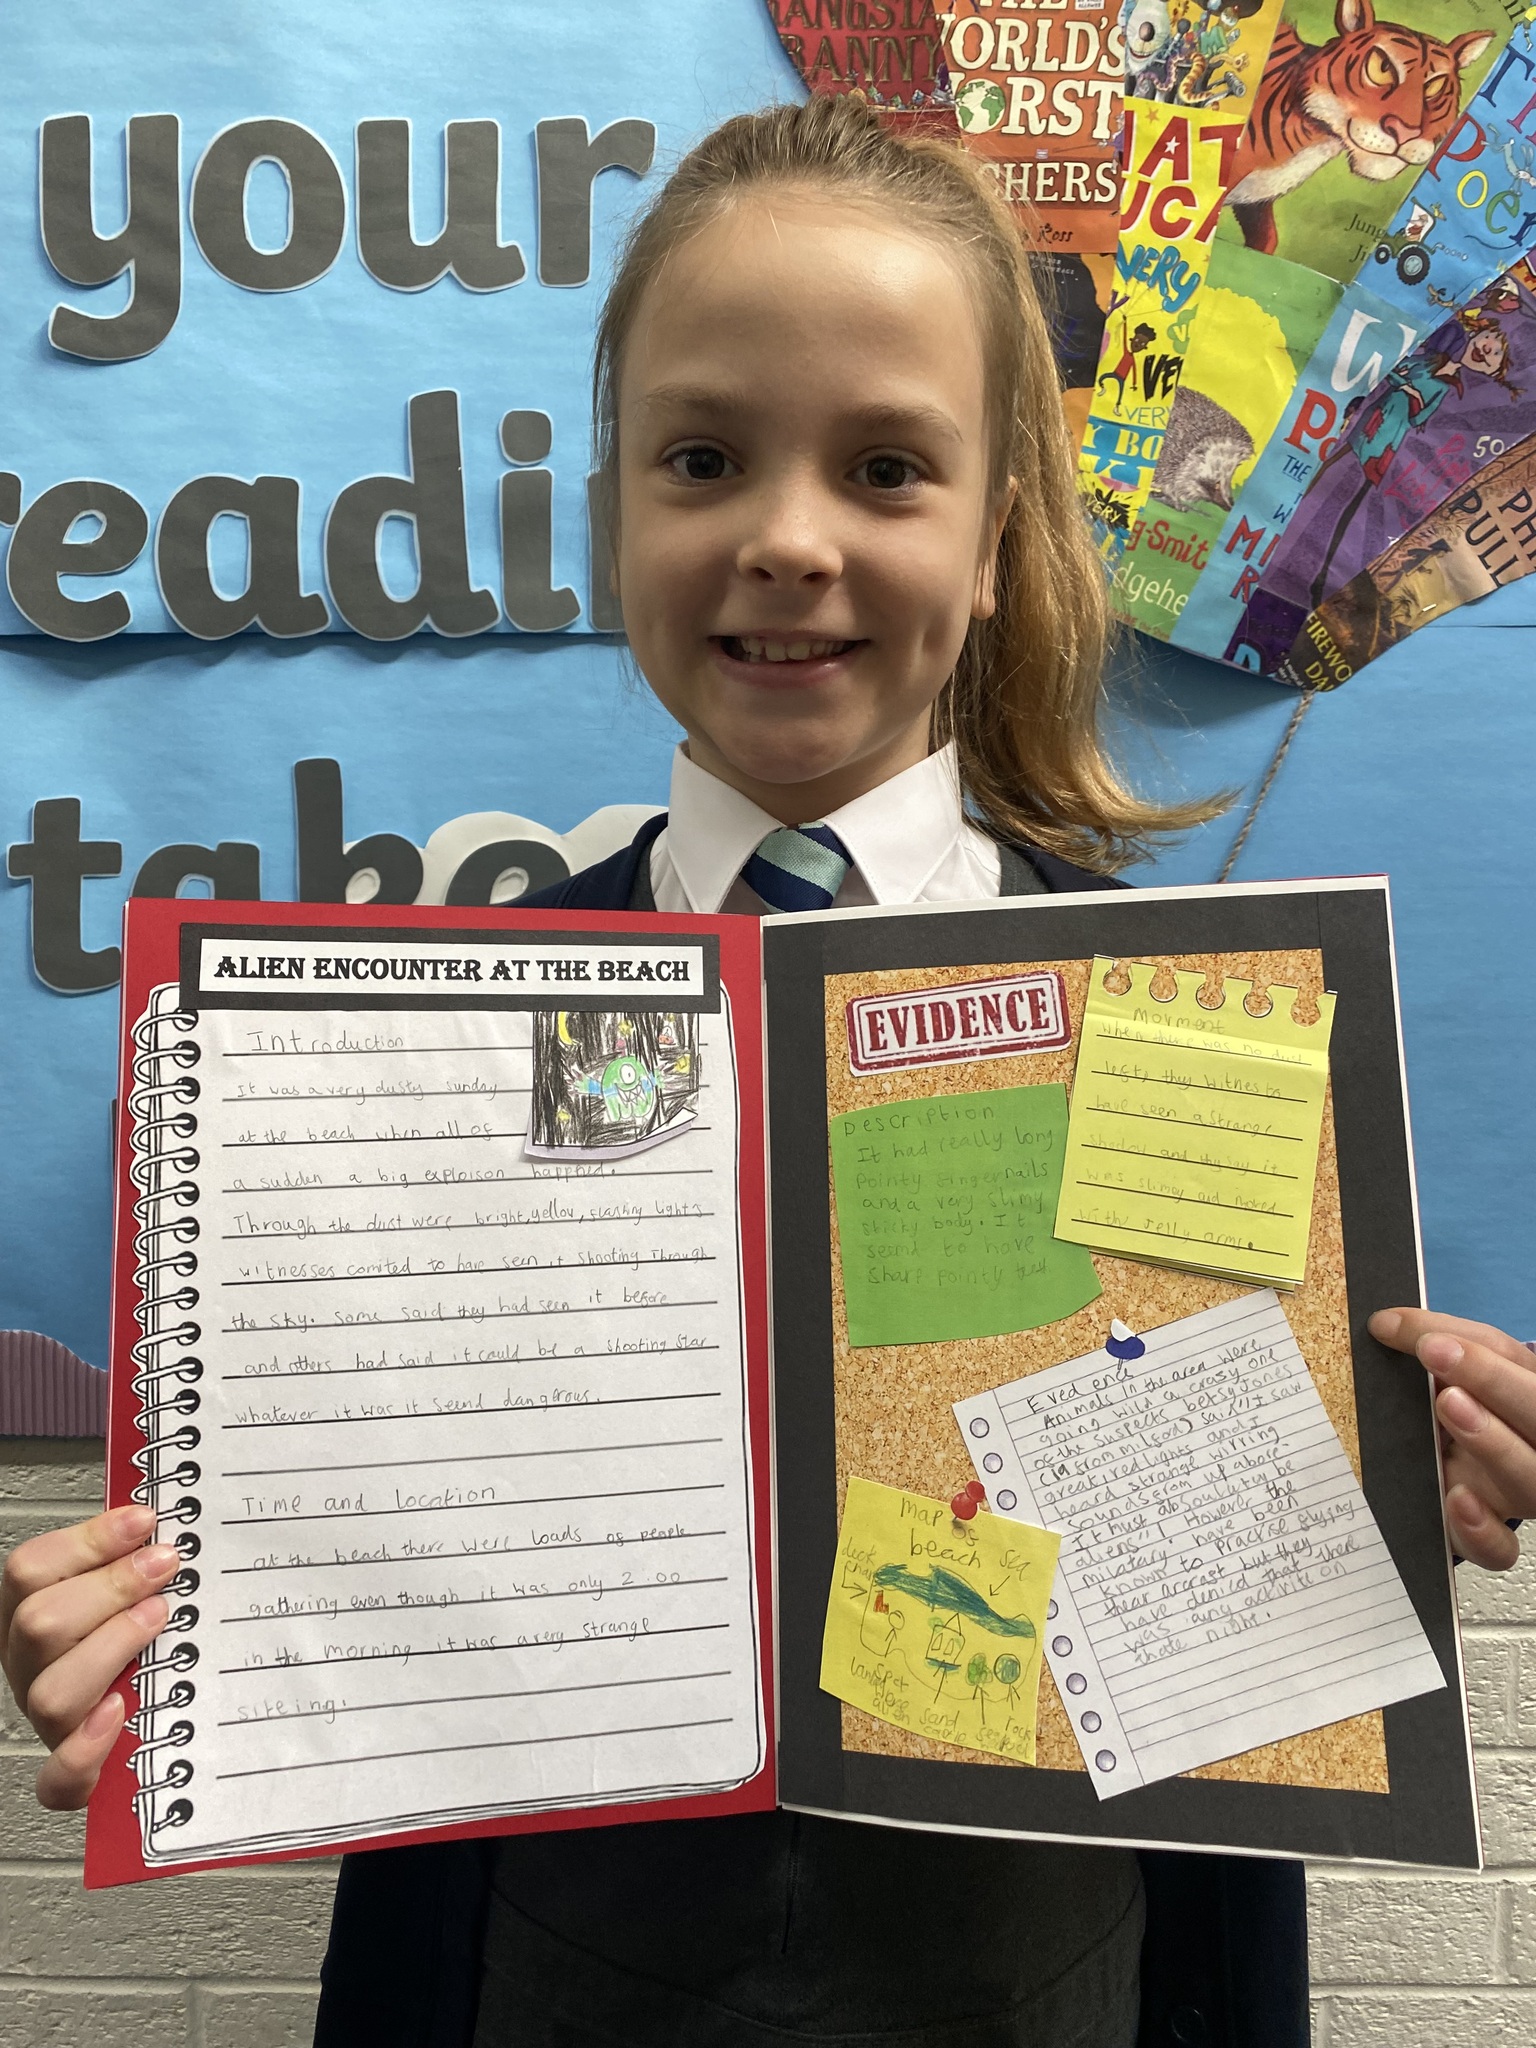 your
reading
take
GANGSTA
GRANNY
THE
WORLD'S
WORST
Ross
VERY
VERY
Jung
Poe
THE
ALIEN ENCOUNTER AT THE BEACH
Introduction
It was a very dusty sunday
at the beach when all of
a sudden a big exploison happned.
Through the dust were bright, yellow, flashing lights
witnesses comited to have seen it shooting Through
the sky. Some said they had seen it before
and others had said it could be a shooting star
whatever it was it seemd dangerous.
Time and location
at the beach there were loads of people
gathering even though it was only 2:00
in the morning it was a very strange
siteing.
EVIDENCE
Description
It had really long
pointy fingernails
and a very slimy
sticky body. It
seemd to have
sharp pointy
Movment
when there was no dust
left, they witness
have seen a strange
shadow and they say it
was slimey and moved
with jelly arms.
Evedence
Animals in the area were
going wild a crazy one
of the suspects betsy Jones
(19 from milford) said "I saw
great red lights and I
heard strange wirring
sounds from up above.
It must absoulutly be
aliens"! However the
milatary have been
known to practise flying
thear arcrast but they
have denied that there
was any activite on
thate night.
map of
beach
sea
deck
chair
landing
spot
where
alien
sand
castle
rock